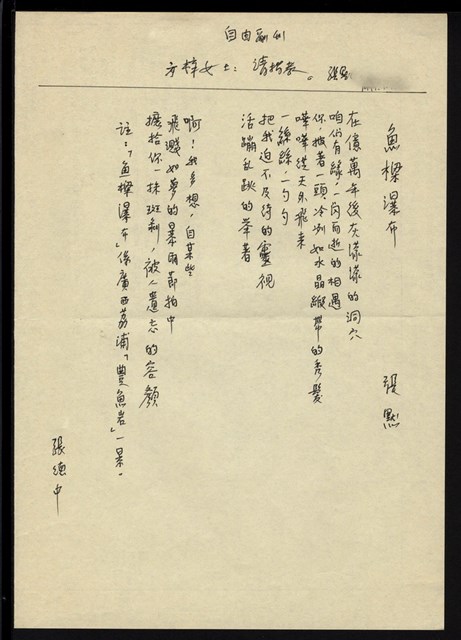 自由副刊
方梓女士：請指教。
魚樑瀑布
張默
在億萬年後灰濛濛的洞穴
咱俩有緣，一閃而逝的相遇
你，披著一頭冷冽如水晶緞帶的秀髮
嘩嘩從天外飛來
一絲絲，一勺勺
把我迫不及待的靈視
活蹦乱跳的举著
啊！我多想，自某些
飛濺如夢的暴雨節拍中
擄拾你一抹斑剝，被人遺忘的容顏
註：「魚樑瀑布」係廣西荔浦「豐魚岩」一景。
張德中